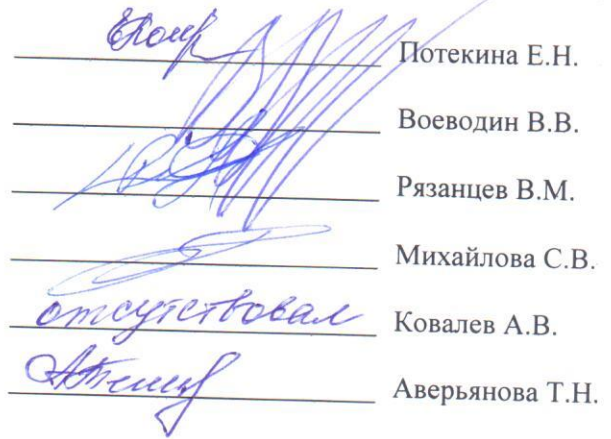 Потекина Е.Н.
Воеводин В.В.
Рязанцев В.М.
Михайлова С.В.
отсутствовал Ковалев А.В.
Аверьянова Т.Н.